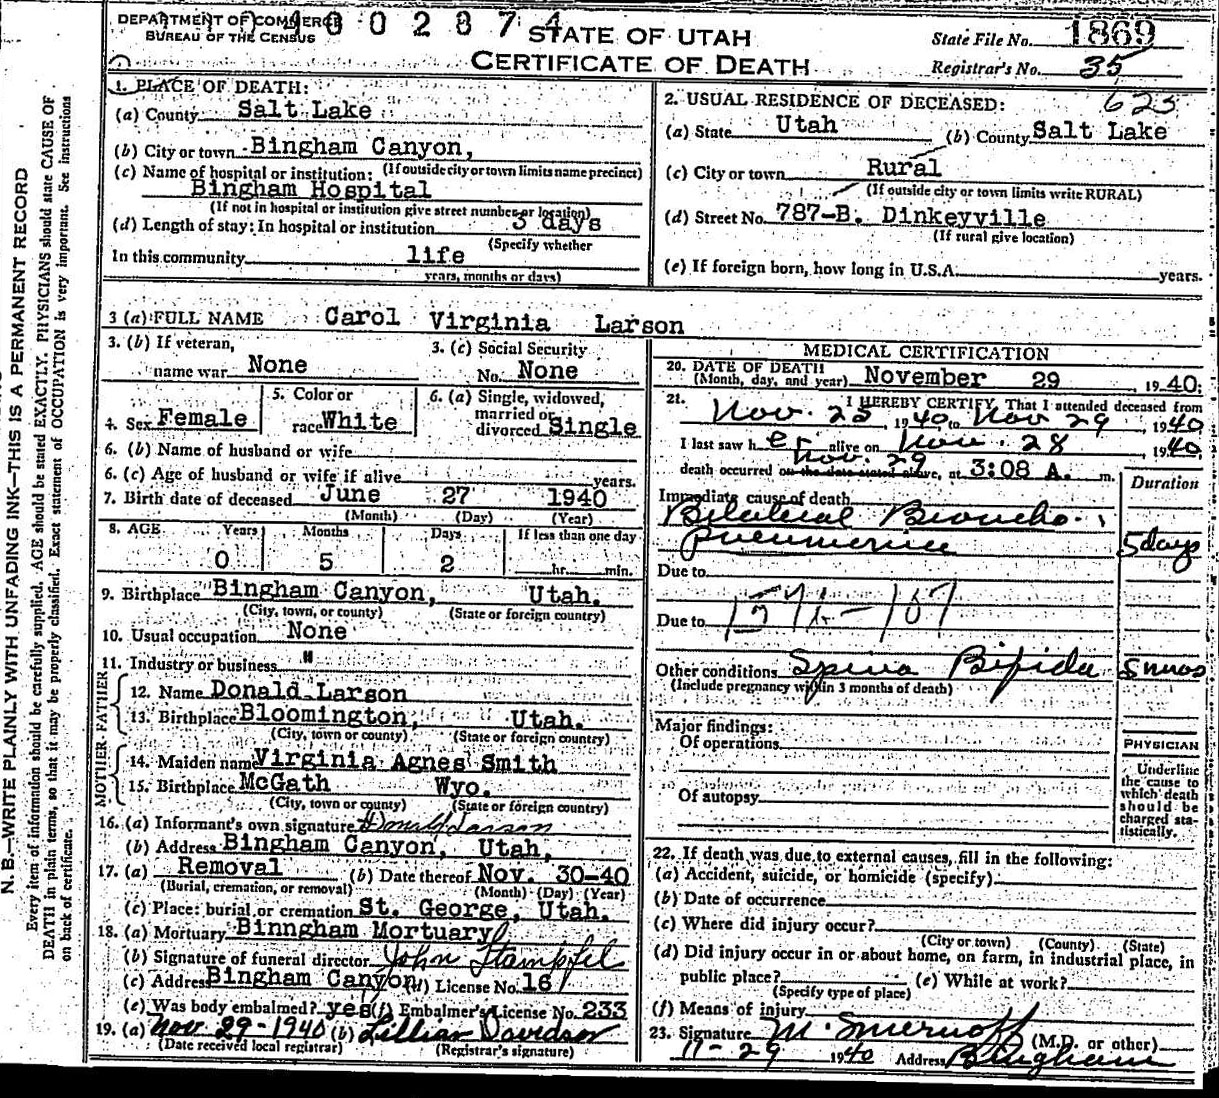 DEPARTMENT OF COMMERCE
BUREAU OF THE CENSUS
STATE OF UTAH
CERTIFICATE OF DEATH
State File No. 1869
Registrar's No. 35
N. B.—WRITE PLAINLY WITH UNFADING INK—THIS IS A PERMANENT RECORD
Every item of information should be carefully supplied. AGE should be stated EXACTLY. PHYSICIANS should state CAUSE OF
DEATH in plain terms, so that it may be properly classified. Exact statement of OCCUPATION is very important. See instructions
on back of certificate.
1. PLACE OF DEATH:
(a) County Salt Lake
(b) City or town Bingham Canyon,
(If outside city or town limits name precinct)
(c) Name of hospital or institution:
Bingham Hospital
(If not in hospital or institution give street number or location)
(d) Length of stay: In hospital or institution 3 days
(Specify whether
In this community life
years, months or days)
625
2. USUAL RESIDENCE OF DECEASED:
(a) State Utah (b) County Salt Lake
(c) City or town Rural
(If outside city or town limits write RURAL)
(d) Street No. 787-B. Dinkeyville
(If rural give location)
(e) If foreign born, how long in U.S.A. years.
3 (a) FULL NAME Carol Virginia Larson
3. (b) If veteran,
name war None
3. (c) Social Security
No. None
4. Sex Female
5. Color or
race White
6. (a) Single, widowed,
married or
divorced Single
6. (b) Name of husband or wife
6. (c) Age of husband or wife if alive years.
7. Birth date of deceased June 27 1940
(Month) (Day) (Year)
8. AGE Years Months Days If less than one day
0 5 2 hr. min.
9. Birthplace Bingham Canyon, Utah.
(City, town, or county) (State or foreign country)
10. Usual occupation None
11. Industry or business "
FATHER
12. Name Donald Larson
13. Birthplace Bloomington, Utah.
(City, town or county) (State or foreign country)
MOTHER
14. Maiden name Virginia Agnes Smith
15. Birthplace McGath Wyo.
(City, town or county) (State or foreign country)
16. (a) Informant's own signature Donald Larson
(b) Address Bingham Canyon, Utah,
17. (a) Removal (b) Date thereof Nov. 30-40
(Burial, cremation, or removal) (Month) (Day) (Year)
(c) Place: burial or cremation St. George, Utah.
18. (a) Mortuary Binngham Mortuary
(b) Signature of funeral director John Stampfel
(c) Address Bingham Canyon (d) License No. 16
(e) Was body embalmed? yes (f) Embalmer's License No. 233
19. (a) Nov 29-1940 (b) Lillian Davidson
(Date received local registrar) (Registrar's signature)
MEDICAL CERTIFICATION
20. DATE OF DEATH
(Month, day, and year) November 29, 1940:
21. I HEREBY CERTIFY, That I attended deceased from
Nov. 25 1940 to Nov 29, 1940
I last saw her alive on Nov. 28 1940
Nov. 29
death occurred on the date stated above, at 3:08 A. m.
Duration
Immediate cause of death
Bilateral Broncho-
Pneumonia 5 days
Due to
Due to
Other conditions Spina Bifida 5 mos
(Include pregnancy within 3 months of death)
Major findings:
Of operations
Of autopsy
PHYSICIAN
Underline
the cause to
which death
should be
charged sta-
tistically.
22. If death was due to external causes, fill in the following:
(a) Accident, suicide, or homicide (specify)
(b) Date of occurrence
(c) Where did injury occur?
(City or town) (County) (State)
(d) Did injury occur in or about home, on farm, in industrial place, in
public place? (e) While at work?
(Specify type of place)
(f) Means of injury
23. Signature M. Smernoff (M.D. or other)
11-29 1940 Address Bingham